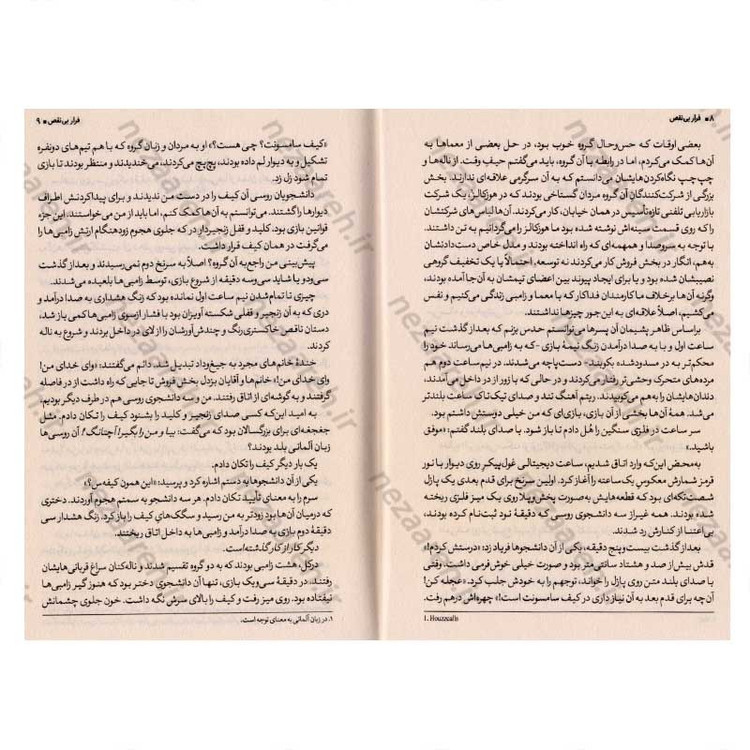 ۸ ■ فرار بی‌نقص
بعضی اوقات که حس‌وحال گروه خوب بود، در حل بعضی از معماها به
آن‌ها کمک می‌کردم، اما در رابطه با آن گروه، باید می‌گفتم حیفِ وقت. از ناله‌ها و
چپ‌چپ نگاه‌کردن‌هایشان می‌دانستم که به آن سرگرمی علاقه‌ای ندارند. بخش
بزرگی از شرکت‌کنندگان آن گروه مردان گستاخی بودند که در هوزکالز¹، یک شرکت
بازاریابی تلفنی تازه‌تأسیس در همان خیابان، کار می‌کردند. آن‌ها لباس‌های شرکتشان
را که روی قسمت سینه‌اش نوشته شده بود ما هوزکالز را می‌گردانیم به تن داشتند.
با توجه به سروصدا و همهمه‌ای که راه انداخته بودند و مدل خاص دست‌دادنشان
به‌هم، انگار در بخش فروش کار می‌کردند نه توسعه. احتمالاً یا یک تخفیف گروهی
نصیبشان شده بود و یا برای ایجاد پیوند بین اعضای تیمشان به آن‌جا آمده بودند،
وگرنه آن‌ها برخلاف ما کارمندان فداکار که با معما و زامبی زندگی می‌کنیم و نفس
می‌کشیم، اصلاً علاقه‌ای به این‌جور چیزها نداشتند.
براساس ظاهر پشیمان آن پسرها می‌توانستم حدس بزنم که بعد از گذشت نیم
ساعت اول و با به صدا درآمدن زنگ نیمهٔ بازی -که به زامبی‌ها می‌رساند خود را
محکم‌تر به در مسدودشده بکوبند- دست‌پاچه می‌شدند. در نیم‌ساعت دوم هم
مرده‌های متحرک وحشی‌تر رفتار می‌کردند و در حالی که با زور در داخل می‌آمدند،
دندان‌هایشان را به‌هم می‌کوبیدند. ریتم آهنگ تند و صدای تیک‌تاک ساعت بلندتر
می‌شد. همهٔ آن‌ها بخشی از آن بازی، بازی‌ای که من خیلی دوستش داشتم بود.
سر ساعت در فلزی سنگین را هُل دادم تا باز شود. با صدای بلند گفتم: «موفق
باشید.»
به‌محض این‌که وارد اتاق شدیم، ساعت دیجیتالی غول‌پیکرِ روی دیوار با نور
قرمز شمارش معکوس یک‌ساعته را آغاز کرد. اولین سرنخ برای قدم بعدی یک پازل
شصت‌تکه‌ای بود که قطعه‌هایش به‌صورت پخش‌وپلا روی یک میز فلزی ریخته
شده بودند. همه غیر از سه دانشجوی روسی که دقیقهٔ نود ثبت‌نام کرده بودند،
بی‌اعتنا از کنارش رد شدند.
بعد از گذشت بیست‌وپنج دقیقه، یکی از آن دانشجوها فریاد زد: «درستش کردم!»
قدش بیش از صد و هشتاد سانتی‌متر بود و صورت خیلی خوش‌فرمی داشت. وقتی
با صدای بلند متن روی پازل را خواند، توجهم را به خودش جلب کرد. «عجله کن!
آن‌چه برای قدم بعد به آن نیاز داری در کیف سامسونت است!» چهره‌اش درهم رفت.
1. Houzzcalls
فرار بی‌نقص ■ ۹
«کیف سامسونت؟ چی هست؟» او به مردان و زنان گروه که با هم تیم‌های دونفره
تشکیل و به دیوار لم داده بودند، پچ‌پچ می‌کردند، می‌خندیدند و منتظر بودند تا بازی
تمام شود زل زد.
دانشجویان روسی آن کیف را در دست من ندیدند و برای پیداکردنش اطراف
دیوارها را گشتند. می‌توانستم به آن‌ها کمک کنم، اما باید از من می‌خواستند، این جزء
قوانین بازی بود. کلید و قفل زنجیردار در که جلوی هجوم زودهنگام ارتش زامبی‌ها را
می‌گرفت در همان کیف قرار داشت.
پیش‌بینی من راجع‌به آن گروه؟ اصلاً به سرنخ دوم نمی‌رسیدند و بعد از گذشت
سی‌ودو یا شاید سی‌وسه دقیقه از شروع بازی، توسط زامبی‌ها بلعیده می‌شدند.
چیزی تا تمام‌شدن نیم ساعت اول نمانده بود که زنگ هشداری به صدا درآمد و
دری که به آن زنجیر و قفلی شکسته آویزان بود با فشار از سوی زامبی‌ها کمی باز شد،
دستان ناقص خاکستری‌رنگ و چندش‌آورشان را از لای در داخل بردند و شروع به ناله
کردند.
خندهٔ خانم‌های مجرد به جیغ‌وداد تبدیل شد. دائم می‌گفتند: «وای خدای من!
وای خدای من!» خانم‌ها و آقایان بزدل بخش فروش تا جایی که راه داشت از در فاصله
گرفتند و به گوشه‌ای از اتاق رفتند. من و سه دانشجوی روسی هم در طرف دیگر بودیم.
به امید این‌که کسی صدای زنجیر و کلید را بشنود کیف را تکان دادم. مثل
جغجغه‌ای برای بزرگسالان بود که می‌گفت: بیا و من را بگیر! آچتانگ¹! آن روسی‌ها
زبان آلمانی بلد بودند؟
یک بار دیگر کیف را تکان دادم.
یکی از آن دانشجوها به دستم اشاره کرد و پرسید: «این همون کیفه‌س؟»
سرم را به معنای تأیید تکان دادم. هر سه دانشجو به سمتم هجوم آوردند. دختری
که درمیان آن‌ها بود زودتر به من رسید و سگک‌های کیف را باز کرد. زنگ هشدار سی
دقیقهٔ دوم بازی به صدا درآمد و زامبی‌ها به داخل اتاق ریختند.
دیگر کار از کار گذشته است.
درکل، هشت زامبی بودند که به دو گروه تقسیم شدند و ناله‌کنان سراغ قربانی‌هایشان
رفتند. در دقیقهٔ سی‌ویک بازی، تنها آن دانشجوی دختر بود که هنوز گیر زامبی‌ها
نیفتاده بود. روی میز رفت و کیف را بالای سرش نگه داشت. خون جلوی چشمانش
۱. در زبان آلمانی به معنای توجه است.
nezaareh.ir